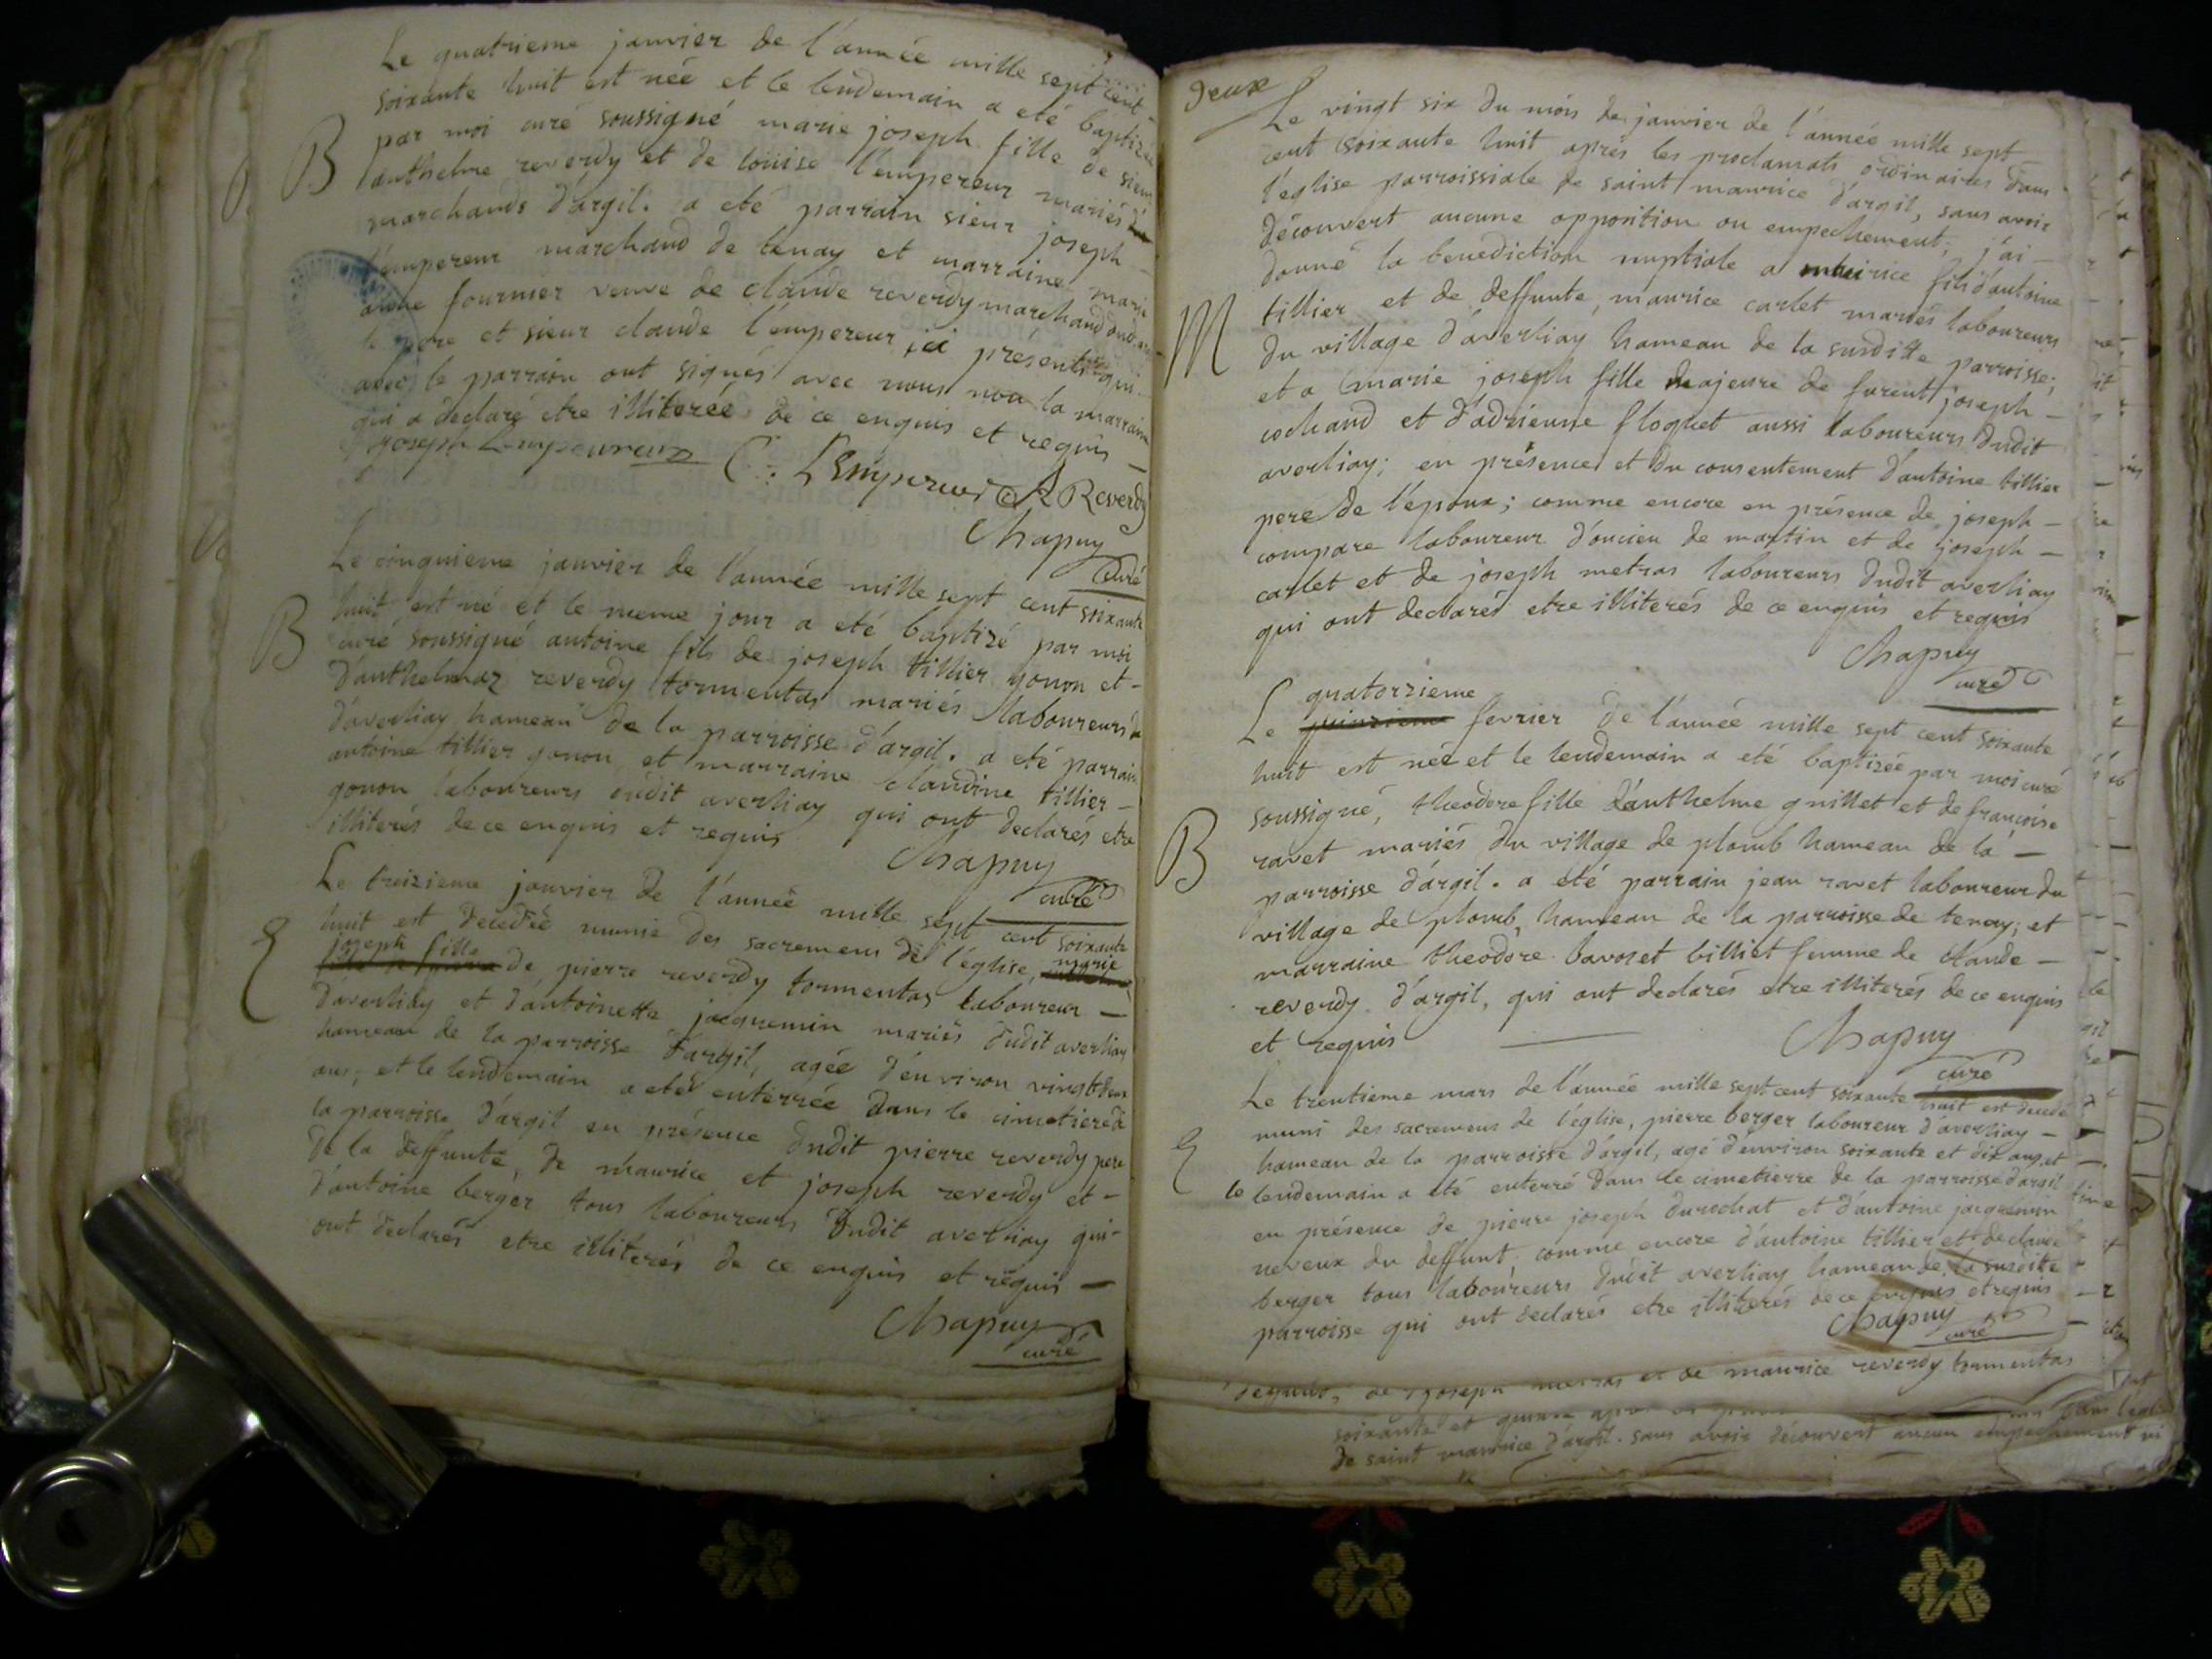 Le quatrieme janvier de l'année mille sept cent
soixante huit est née et le lendemain a eté baptizée
par moi curé soussigné marie joseph fille de sieur
B
anthelme reverdy et de loüise l'empereur mariés
marchands d'argil. a eté parrain sieur joseph
l'empereur marchand de tenay et marraine marie
anne fournier veuve de claude reverdy marchand
le pere et sieur claude l'empereur ici présents qui
avec le parrain ont signés avec nous non la marraine
qui a declaré etre illiterée de ce enquis et requis
joseph Lempereur C. LEmpereur A Reverdy
Chapuy
curé
Le cinquieme janvier de l'année mille sept cent soixante
huit est né et le meme jour a eté baptizé par moi
B
curé soussigné antoine fils de joseph tillier gonon et -
d'anthelmaz reverdy tormentas mariés laboureurs
d'averliay hameau de la parroisse d'argil. a eté parrain
antoine tillier gonon et marraine claudine tillier -
gonon laboureurs dudit averliay qui ont declarés etre
illiterés de ce enquis et requis
Chapuy
curé
Le treizieme janvier de l'année mille sept cent soixante
huit est decedée munie des sacremens de l'église, marie
E
joseph fille de pierre reverdy tormentas laboureur -
d'averliay et d'antoinette jacquemin mariés dudit averliay
hameau de la parroisse d'argil, agée d'environ vingt deux
ans; et le lendemain a eté enterrée dans le cimetiere de
la parroisse d'argil en présence dudit pierre reverdy pere
de la deffunte, de maurice et joseph reverdy et -
d'antoine berger tous laboureurs dudit averliay qui -
ont declarés etre illiterés de ce enquis et requis -
Chapuy
curé
deux
Le vingt six du mois de janvier de l'année mille sept
cent soixante huit aprés les proclamats ordinaires dans
l'église parroissiale de saint maurice d'argil, sans avoir
découvert aucune opposition ou empechement; j'ai -
donné la benediction nuptiale a maurice fils d'antoine
M
tillier et de deffunte maurice carlet mariés laboureurs
du village d'averliay hameau de la susditte parroisse;
et a marie joseph fille majeure de furent joseph -
cochand et d'adrienne floquet aussi laboureurs dudit
averliay; en présence et du consentement d'antoine tillier
pere de l'époux; comme encore en présence de joseph -
compare laboureur d'oncieu de martin et de joseph -
carlet et de joseph metras laboureurs dudit averliay
qui ont declarés etre illiterés de ce enquis et requis
Chapuy
curé
quatorzieme
Le quinzieme fevrier de l'année mille sept cent soixante
huit est née et le lendemain a eté baptizée par moi curé
soussigné, theodore fille d'anthelme guillet et de francoise
B
ravet mariés du village de plomb hameau de la -
parroisse d'argil. a eté parrain jean ravet laboureur du
village de plomb, hameau de la parroisse de tenay; et
marraine theodore bavozet billiet femme de claude -
reverdy d'argil, qui ont declarés etre illiterés de ce enquis
et requis
Chapuy
curé
Le trentieme mars de l'année mille sept cent soixante huit est decedé
muni des sacremens de l'église, pierre berger laboureur d'averliay -
E
hameau de la parroisse d'argil, agé d'environ soixante et dix ans, et
le lendemain a eté enterré dans le cimetierre de la parroisse d'argil
en présence de pierre joseph durochat et d'antoine jacquemin
neveux du deffunt, comme encore d'antoine tillier et de claude
berger tous laboureurs dudit averliay hameau de la susditte
parroisse qui ont declarés etre illiterés de ce enquis et requis
Chapuy
curé
de joseph metras et de maurice reverdy tormentas
soixante et quinze
de saint maurice d'argil. sans avoir découvert aucun empechement ni